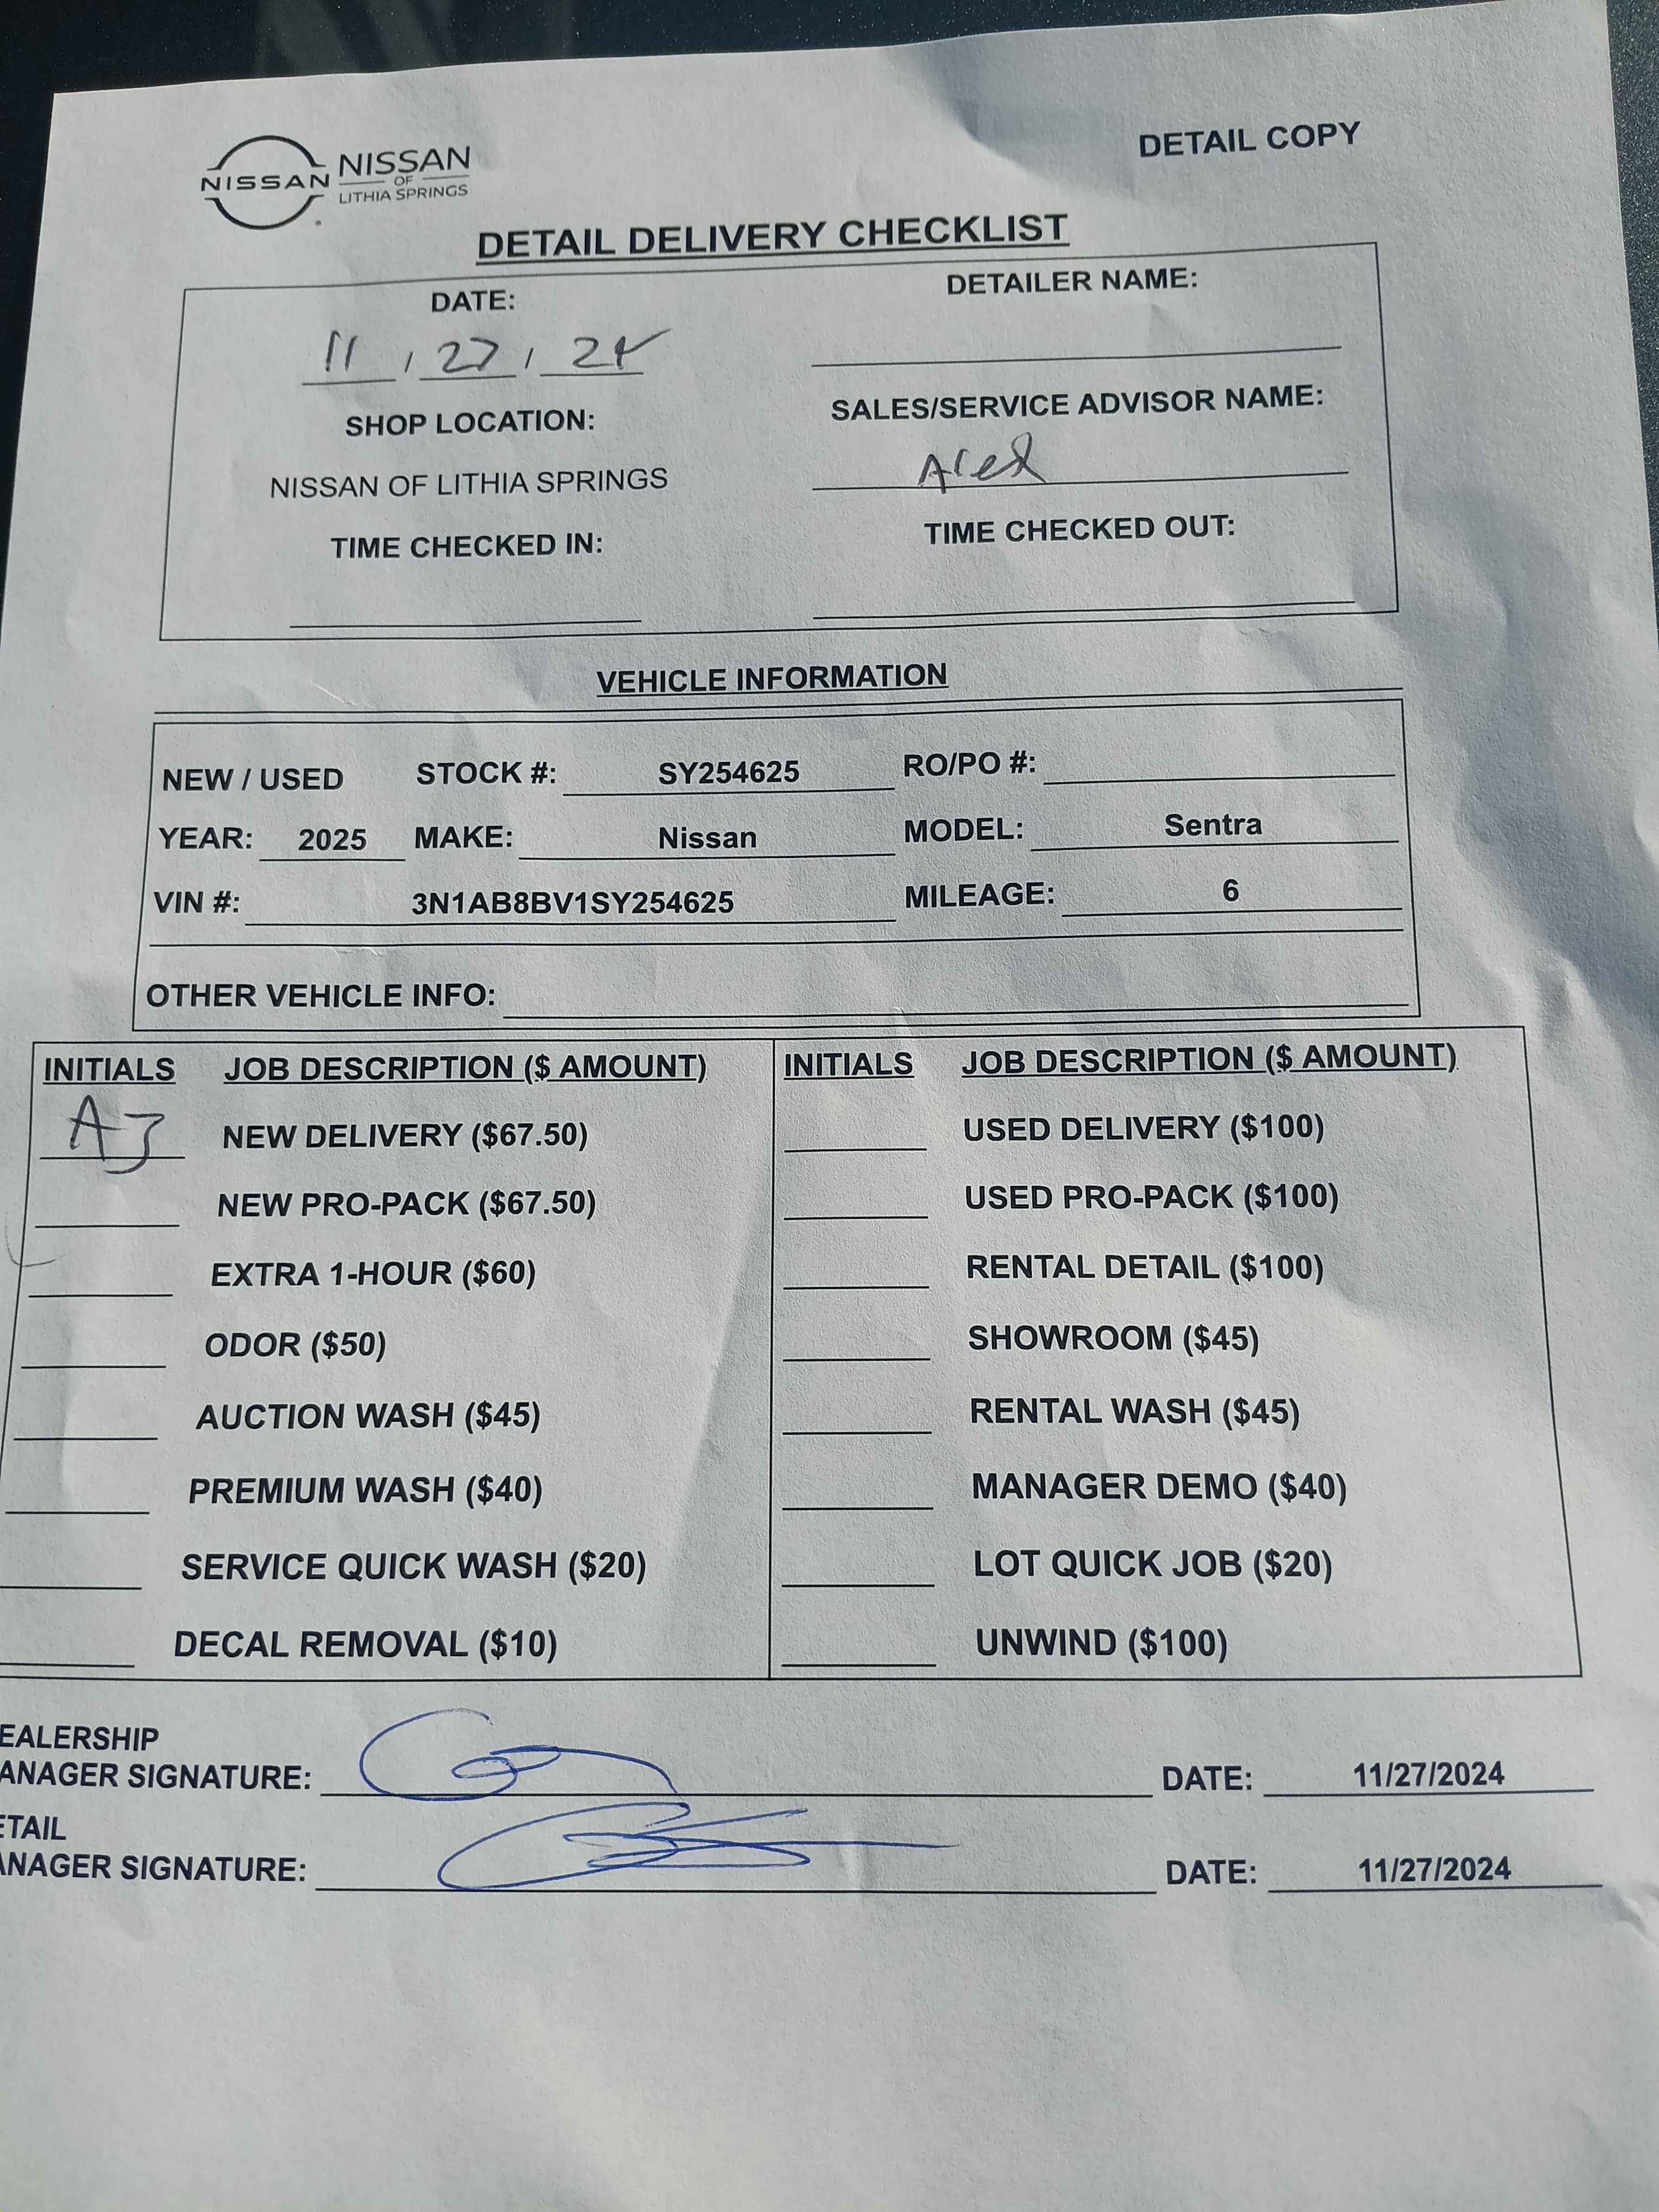 DETAIL COPY
NISSAN NISSAN
OF
LITHIA SPRINGS
DETAIL DELIVERY CHECKLIST
DATE: DETAILER NAME:
11 / 27 / 24
SHOP LOCATION: SALES/SERVICE ADVISOR NAME:
NISSAN OF LITHIA SPRINGS Alex
TIME CHECKED IN: TIME CHECKED OUT:
VEHICLE INFORMATION
NEW / USED STOCK #: SY254625 RO/PO #:
YEAR: 2025 MAKE: Nissan MODEL: Sentra
VIN #: 3N1AB8BV1SY254625 MILEAGE: 6
OTHER VEHICLE INFO:
INITIALS JOB DESCRIPTION ($ AMOUNT) INITIALS JOB DESCRIPTION ($ AMOUNT)
AJ NEW DELIVERY ($67.50) USED DELIVERY ($100)
NEW PRO-PACK ($67.50) USED PRO-PACK ($100)
EXTRA 1-HOUR ($60) RENTAL DETAIL ($100)
ODOR ($50) SHOWROOM ($45)
AUCTION WASH ($45) RENTAL WASH ($45)
PREMIUM WASH ($40) MANAGER DEMO ($40)
SERVICE QUICK WASH ($20) LOT QUICK JOB ($20)
DECAL REMOVAL ($10) UNWIND ($100)
EALERSHIP
ANAGER SIGNATURE: DATE: 11/27/2024
ETAIL
ANAGER SIGNATURE: DATE: 11/27/2024